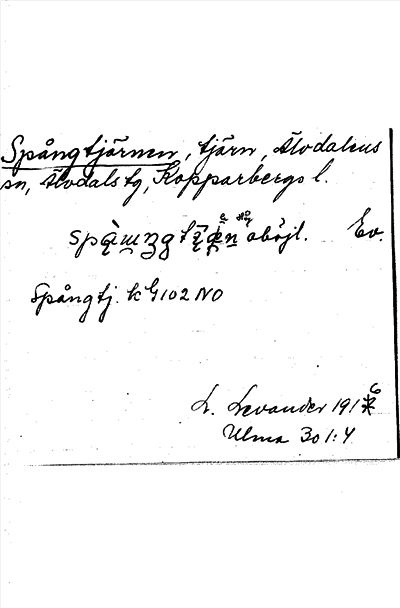 Spångtjärnen, tjärn, Älvdalens
sn, Älvdals tg, Kopparbergs l.
oböjl. Ev.
Spångtj. k G102 NO
L. Levander 1916
Ulma 301:4